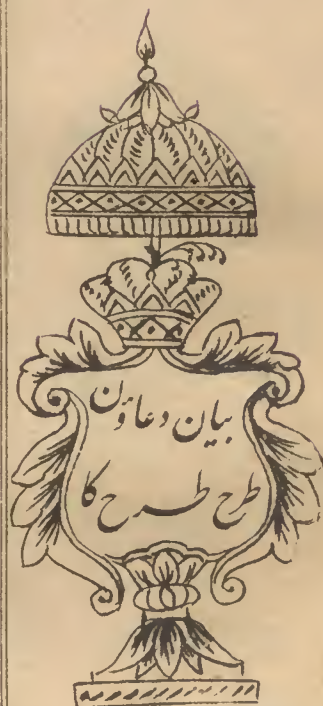 بیان دعاؤن
طرح طرح کا